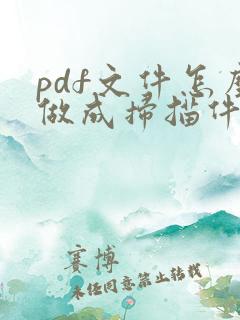 pdf文件怎麼
做成掃描件
赛博
未经同意禁止转载